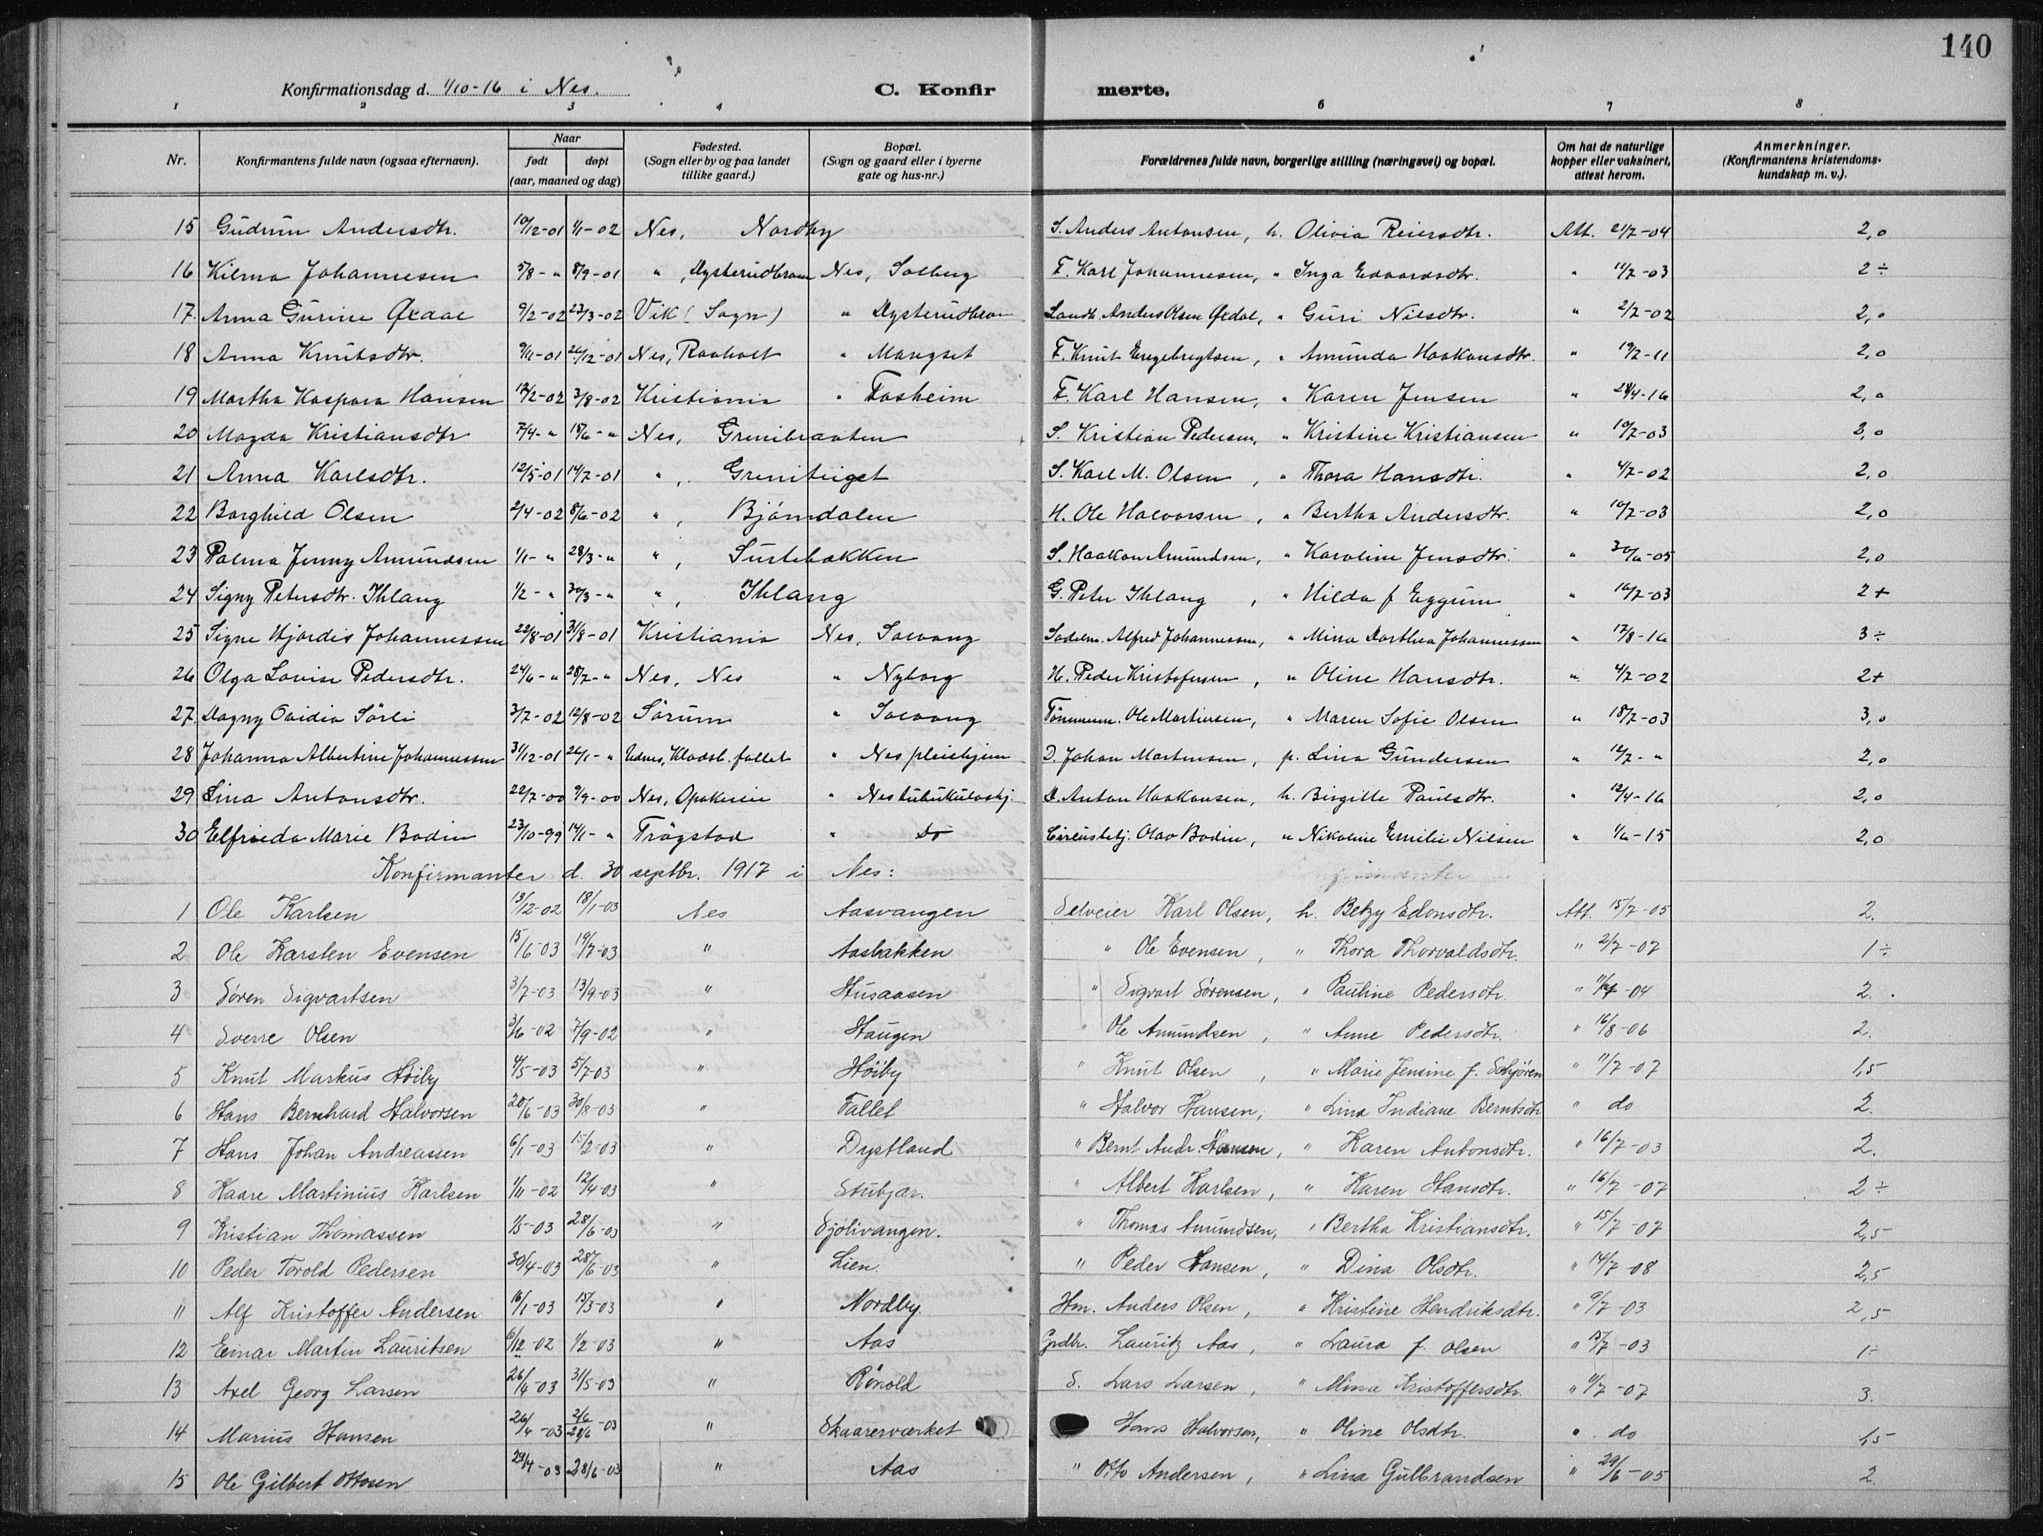 140
Konfirmationsdag d. 1/10-16 i Nes. C. Konfirmerte.
1 2 3 4 6 7 8
Nr. Konfirmantens fulde navn (ogsaa efternavn). Naar født døpt (aar, maaned og dag) Fødested. (Sogn eller by og paa landet tillike gaard.) Bopæl. (Sogn og gaard eller i byerne gate og hus-nr.) Forældrenes fulde navn, borgerlige stilling (næringsvei) og bopæl. Om hat de naturlige kopper eller vaksinert, attest herom. Anmerkninger. (Konfirmantens kristendoms-kundskap m. v.).
15 Gudrun Andersdtr. 10/12-01 1/1-02 Nes, Nordby S. Anders Antonsen, h. Olivia Reiersdtr. Att. 21/7-04 2,0
16 Wilma Johannesen 5/8-" 8/9-01 " , Dysterudbraa Nes, Solberg F. Karl Johannesen, " Inga Edvardsdtr. " 11/7-03 2÷
17. Anna Gurine Øxdal 9/2-02 23/3-02 Vik (Sogn) " Dysterudbraa Landh. Anders Olsen Øxdal, " Guri Nilsdtr. " 2/7-02 2,0
18 Anna Knutsdtr. 9/11-01 26/12-01 Nes, Raaholt " Mangset F. Knut Engebregtsen, " Amunda Haakonsdtr. " 19/7-11 2,0
19 Martha Kaspara Hansen 12/2-02 3/8-02 Kristiania " Fosheim F. Karl Hansen, " Karen Jensen " 28/4-16 2,0
20 Magda Kristiansdtr 7/4-" 15/6-" Nes, Grenibraaten S. Kristian Pedersen, " Kristine Kristiansen " 10/7-03 2,0
21 Anna Karlsdtr. 12/5-01 14/7-01 " , Greniteiget S. Karl M. Olsen , " Thora Hansdtr. " 4/7-02 2,0
22 Borghild Olsen 2/4-02 8/6-02 " , Bjørndalen H. Ole Halvorsen , " Bertha Andersdtr. " 10/7-03 2,0
23 Palma Jenny Amundsen 1/1-" 28/3-" " , Surtebakken S. Haakon Amundsen, " Karoline Jensdtr. " 30/6-05 2,0
24 Signy Petersdtr. Ihlang 1/2-" 30/3-" " , Ihlang G. Peter Ihlang , " Hilda f Eggum " 16/7-03 2+
25 Signe Hjørdis Johannessen 22/8-01 31/8-01 Kristiania Nes, Solvang Sadelm. Alfred Johannessen, " Mina Dorthea Johannessen " 17/8-16 3÷
26 Olga Lovise Pedersdtr. 24/6-" 28/7-" Nes, Nes " Nyborg H. Peder Kristofersen , " Oline Hansdtr. " 4/7-02 2+
27 Dagny Ovidia Sørli 3/7-02 12/8-02 Sørum " Solvang Tømmerm. Ole Martinsen, " Maren Sofie Olsen " 18/7-03 3,0
28 Johanna Albertine Johannessen 31/12-01 26/1-" Udnes, Klodsb. fallet " Nes pleiehjem D. Johan Martinsen, p. Lina Gundersen " 12/7-" 2,0
29 Lina Antonsdtr. 22/7-00 9/9-00 Nes, Opakereie " Nes tuberkuloshj. D. Anton Haakonsen, h. Birgitte Paulsdtr. " 12/4-16 2,0
30 Elfrieda Marie Bodin 23/10-99 14/1-" Trøgstad " Do Circustebj. Olav Bodin, " Nikoline Emilie Nilsen " 1/6-15 2,0
Konfirmanter d. 30 septbr. 1917 i Nes:
1 Ole Karlsen 13/12-02 18/1-03 Nes Aasvangen Selveier Karl Olsen, h. Betzy Edonsdtr. Att. 15/7-05 2.
2 Ole Karsten Evensen 15/6-03 19/7-03 " Aasbakken " Ole Evensen , " Thora Thorvaldsdtr. " 2/7-07 1÷
3 Søren Sigvartsen 3/7-03 13/9-03 " Husaasen " Sigvart Sørensen, " Pauline Pedersdtr. " 11/7-04 2.
4 Sverre Olsen 3/6-02 7/9-02 " Haugen " Ole Amundsen , " Anne Pedersdtr. " 16/8-06 2.
5 Knut Markus Høiby 4/5-03 5/7-03 " Høiby " Knut Olsen , " Marie Jensine f. Schjøren " 11/7-07 1,5
6 Hans Bernhard Halvorsen 20/6-03 30/8-03 " Fallet " Halvor Hansen, " Lina Indiane Berntsdtr " do 2.
7 Hans Johan Andreassen 6/1-03 15/2-03 " Dystland " Bernt Andr. Hansen, " Karen Antonsdtr. " 16/7-03 2.
8 Kaare Martinius Karlsen 1/11-02 12/4-03 " Stubjær. " Albert Karlsen, " Karen Hansdtr. " 16/7-07 2÷
9 Kristian Thomassen 1/5-03 28/6-03 " Sjølivangen. " Thomas Amundsen, " Bertha Kristiansdtr. " 15/7-07 2,5
10 Peder Torold Pedersen 30/4-03 28/6-03 " Lien. " Peder Hansen, " Dina Olsdtr. " 14/7-08 2,5
11 Alf Kristoffer Andersen 16/1-03 15/3-03 " Nordby. Hm. Anders Olsen , " Kristine Hendriksdtr. " 9/7-03 2,5
12 Einar Martin Lauritsen 6/12-02 1/2-03 " Aas Grdbr. Lauritz Aas, " Laura f. Olsen " 15/7-03 1÷
13 Axel Georg Larsen 26/4-03 31/5-03 " Rønold S. Lars Larsen , " Mina Kristoffersdtr. " 11/7-07 3.
14 Marius Hansen 26/4-03 28/6-03 " Skaarerværket Hans Halvorsen, " Oline Olsdtr. " do 1,5
15 Ole Gilbert Ottosen 29/4-03 28/6-03 " Aas " Otto Andersen , " Lina Gulbrandsen " 29/6-05 2